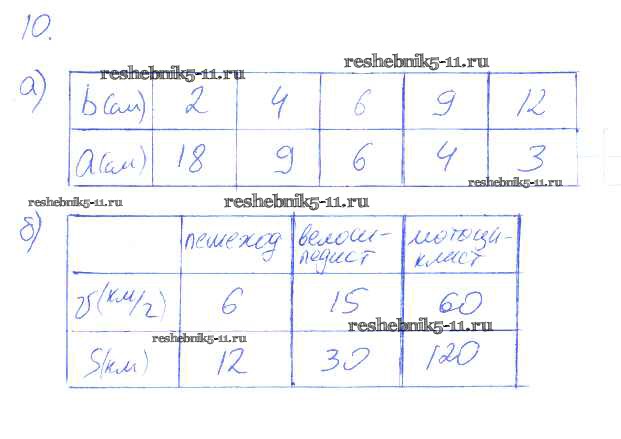 10.
reshebnik5-11.ru
reshebnik5-11.ru
а)
b(см) 2 4 6 9 12
a(см) 18 9 6 4 3
reshebnik5-11.ru
reshebnik5-11.ru
reshebnik5-11.ru
б)
пешеход велоси- мотоци-
педист клист
v(км/ч) 6 15 60
reshebnik5-11.ru
reshebnik5-11.ru
S(км) 12 30 120